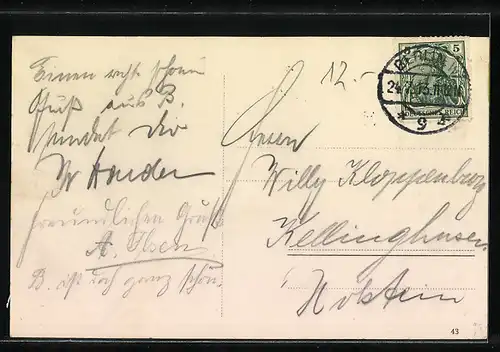 Einen recht schönen
Gruß aus B.
sendet dir
Freundlichen Gruß
A. Ibsen
B. ist doch ganz schön.
12.-
Herrn
Willy Kloppenburg
Kellinghusen
Holstein
BERLIN
24.7.13.11-12V.
* 9 a
5
DEUTSCHES REICH
43